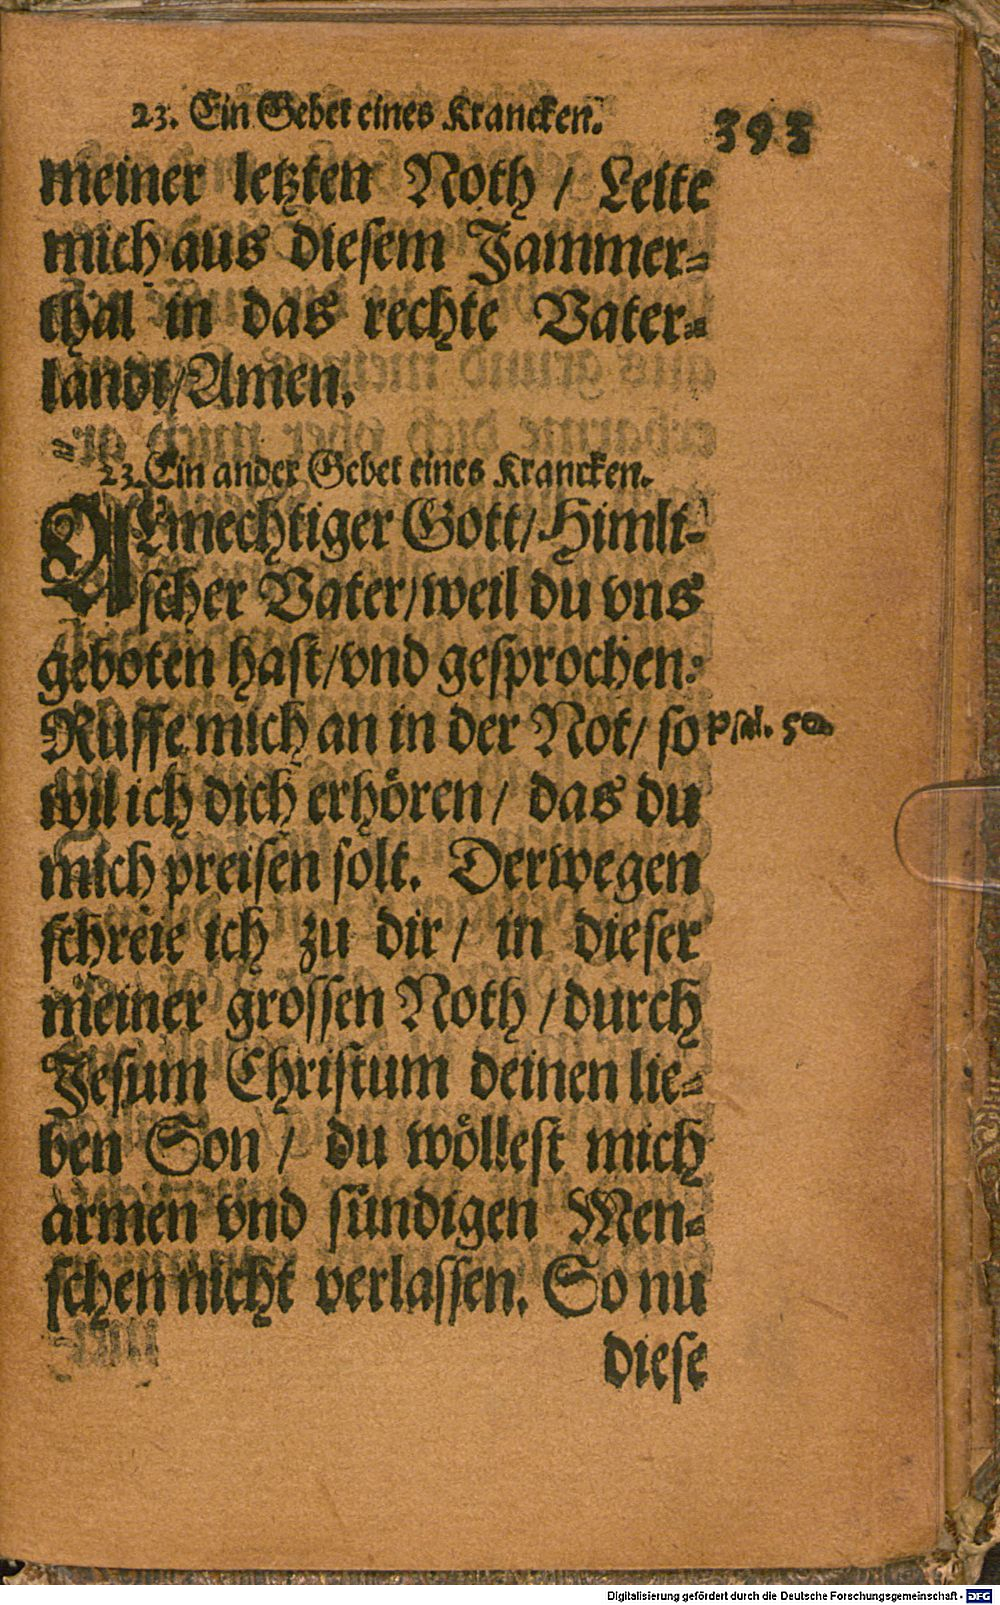 23. Ein Gebet eines Krancken. 393
meiner letzten Noth / Leite
mich aus diesem Jammer=
thal in das rechte Vater=
landt / Amen.
23. Ein ander Gebet eines Krancken.
ALmechtiger Gott / Himli=
scher Vater / weil du vns
geboten hast / vnd gesprochen:
Ruffe mich an in der Not / so Psal. 50
wil ich dich erhören / das du
mich preisen solt. Derwegen
schreie ich zu dir / in dieser
meiner grossen Noth / durch
Jesum Christum deinen lie=
ben Son / du wöllest mich
armen vnd sündigen Men=
schen nicht verlassen. So nu
diese
Digitalisierung gefördert durch die Deutsche Forschungsgemeinschaft - DFG